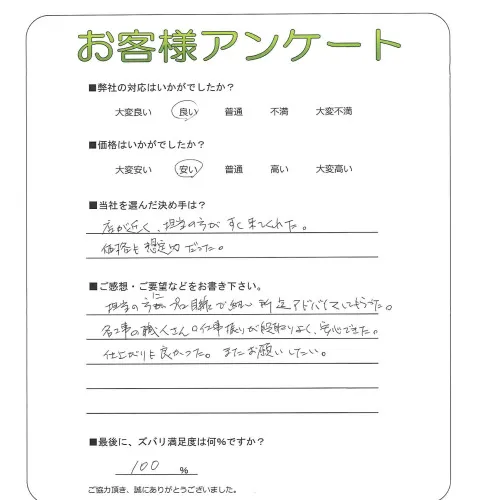 お客様アンケート
■弊社の対応はいかがでしたか?
大変良い 良い 普通 不満 大変不満
■価格はいかがでしたか?
大変安い 安い 普通 高い 大変高い
■当社を選んだ決め手は?
店が近く、担当の方がすぐ来てくれた。
価格も想定内だった。
■ご感想・ご要望などをお書き下さい。
担当の方にプロ目線で細い所迄アドバイスしてもらった。
各工事の職人さんの仕事振りが段取りよく、安心できた。
仕上がりも良かった。またお願いしたい。
■最後に、ズバリ満足度は何%ですか?
100 %
ご協力頂き、誠にありがとうございました。